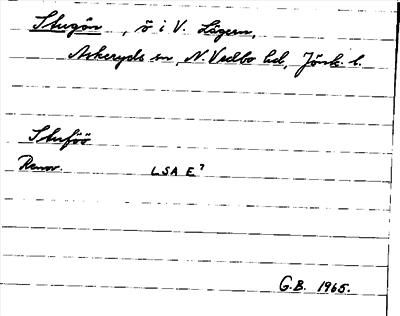 Stugön, ö i V. Lägern,
Askeryds sn, N. Vedbo hd, Jönk. l.
Stuföö
Renov. LSA E7
G.B. 1965.